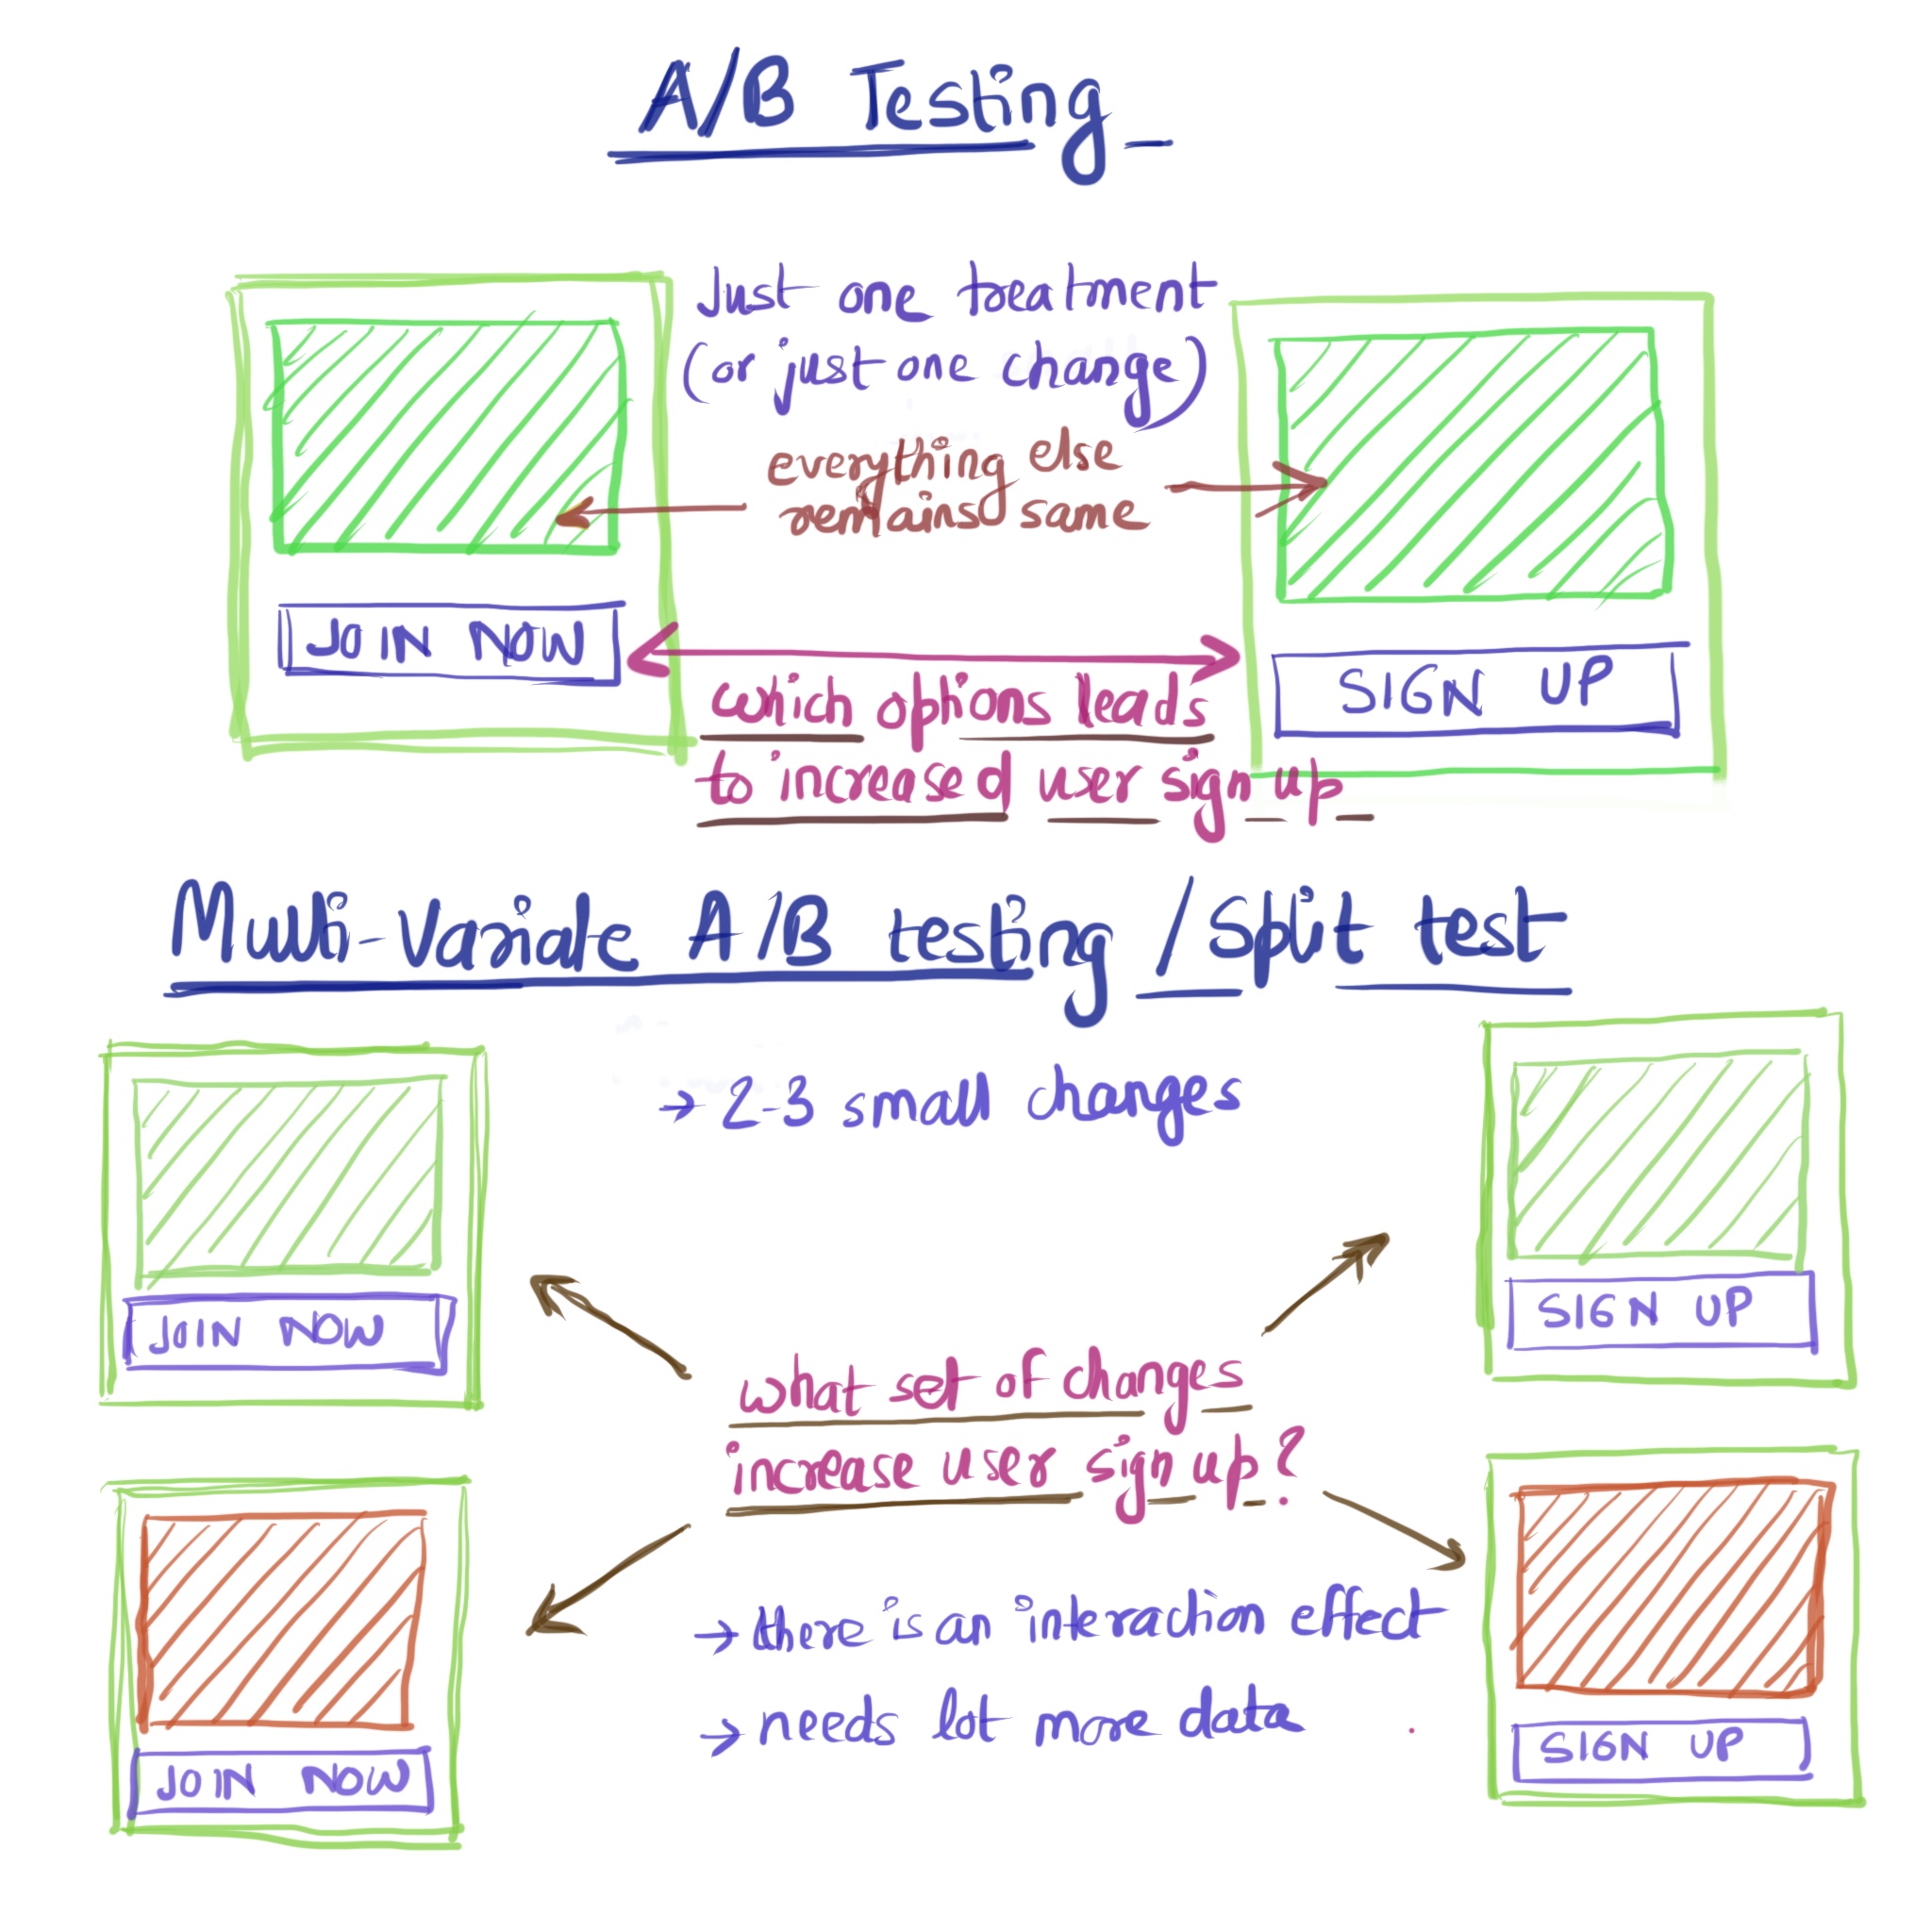 A/B Testing
Just one treatment
(or just one change)
everything else
remains same
JOIN NOW
SIGN UP
which options leads
to increased user sign up
Multi-Variate A/B testing / Split test
→ 2-3 small changes
JOIN NOW
SIGN UP
what set of changes
increase user sign up?
→ there is an interaction effect
→ needs lot more data
JOIN NOW
SIGN UP